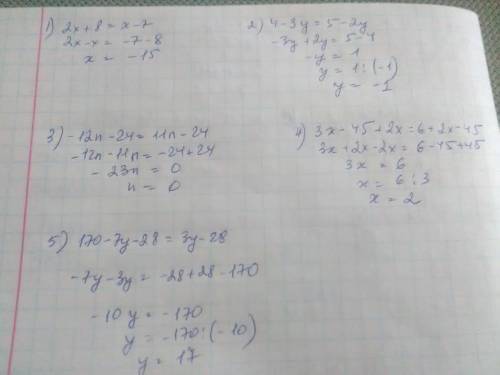 1) 2x+8 = x-7
2x-x = -7-8
x = -15
2) 4-3y = 5-2y
-3y+2y = 5-4
-y = 1
y = 1:(-1)
y = -1
3) -12n-24 = 11n-24
-12n-11n = -24+24
-23n = 0
n = 0
4) 3x-45+2x = 6+2x-45
3x+2x-2x = 6-45+45
3x = 6
x = 6:3
x = 2
5) 170-7y-28 = 3y-28
-7y-3y = -28+28-170
-10y = -170
y = -170:(-10)
y = 17